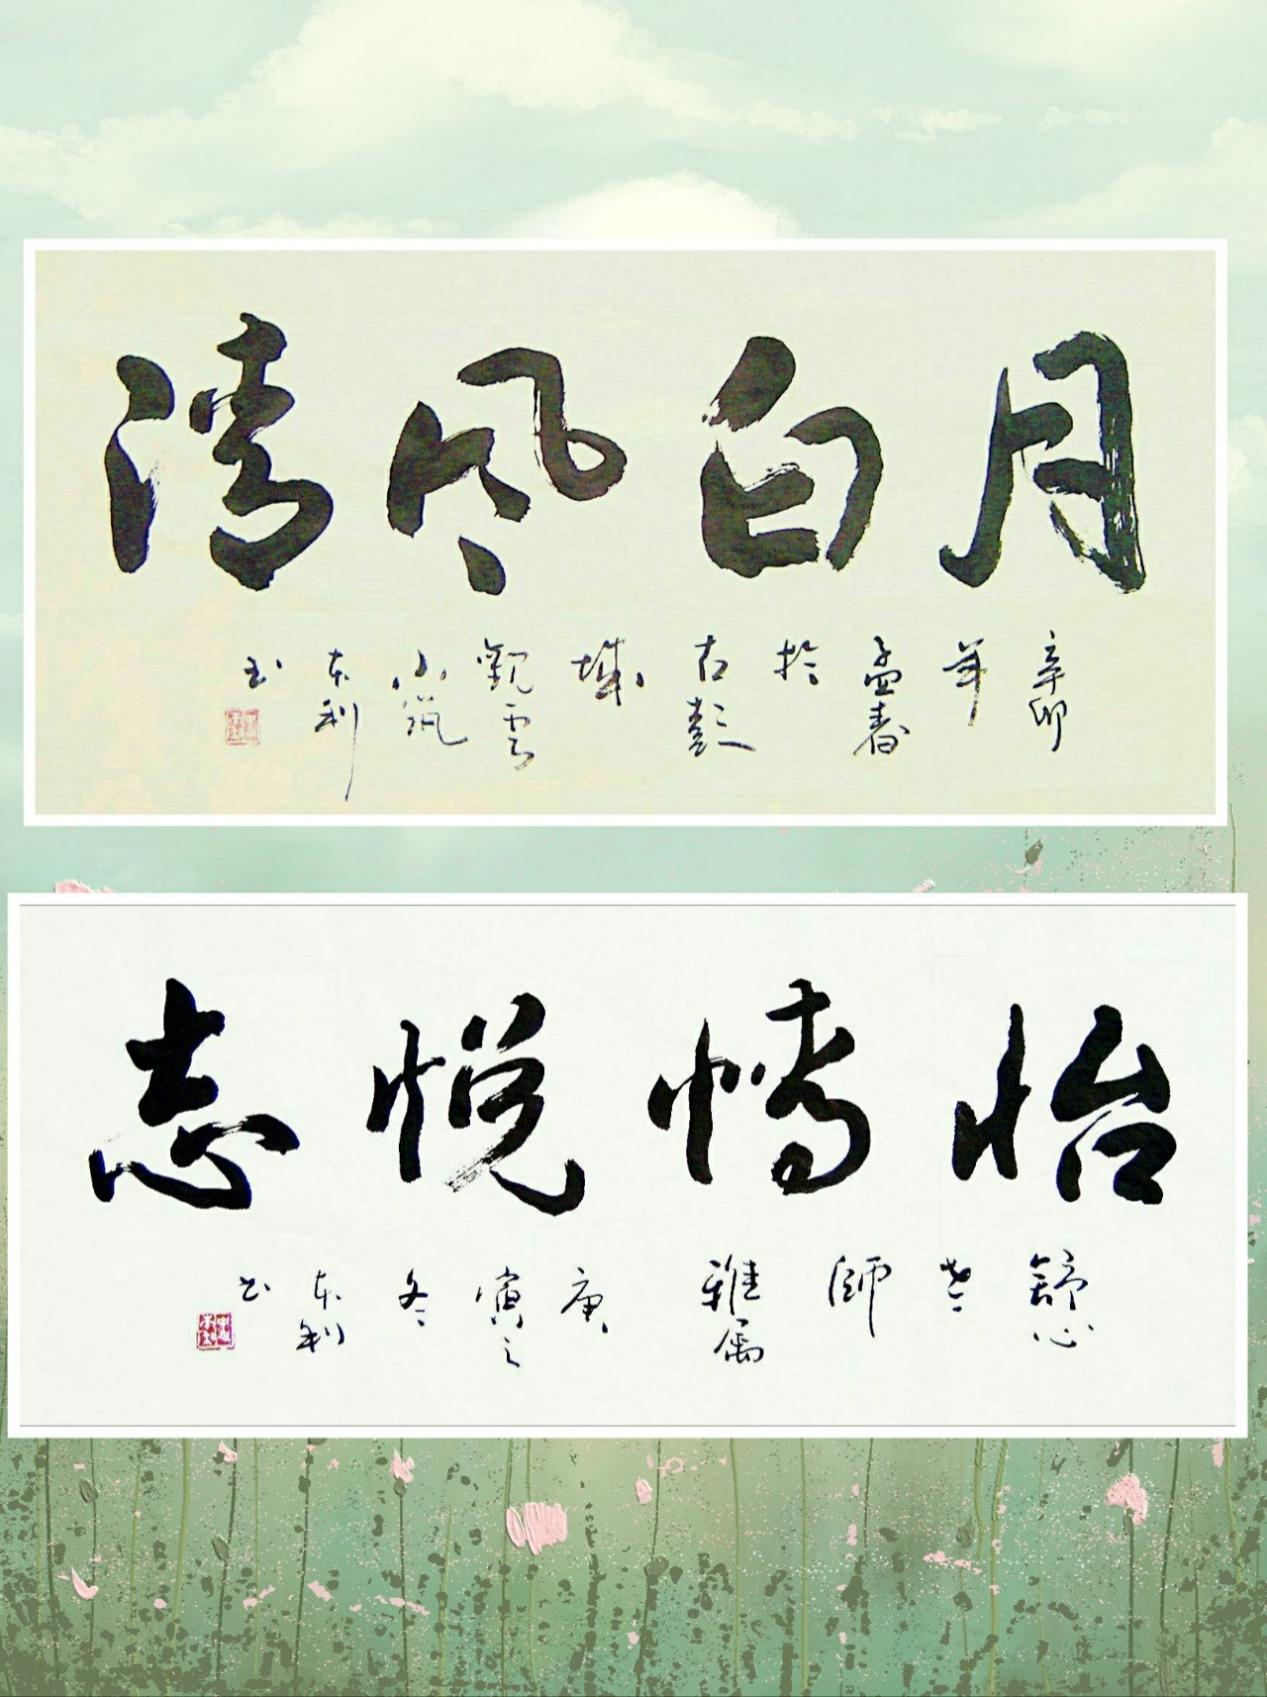 月白风清
辛卯年孟春於古彭城觀雲小筑本利书
怡情悦志
舒心老師雅属
庚寅之冬本利书